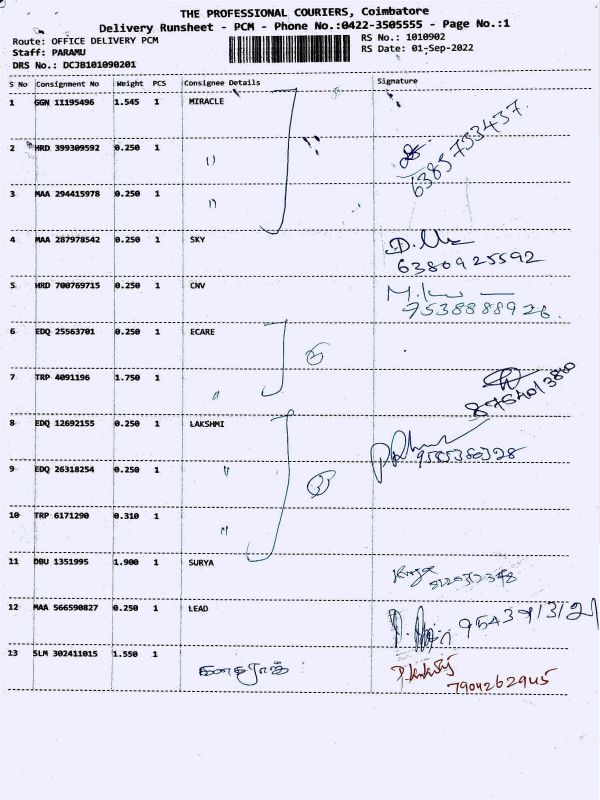 THE PROFESSIONAL COURIERS, Coimbatore
Delivery Runsheet - PCM - Phone No.:0422-3505555 - Page No.:1
Route: OFFICE DELIVERY PCM
RS No.: 1010902
Staff: PARAMU
RS Date: 01-Sep-2022
DRS No.: DCJB101090201
S No Consignment No Weight PCS Consignee Details Signature
1 GGN 11195496 1.545 1 MIRACLE
6385733437
2 HRD 399309592 0.250 1 "
3 MAA 294415978 0.250 1 "
4 MAA 287978542 0.250 1 SKY
6380925592
5 HRD 700769715 0.250 1 CNV
9538888926
6 EDQ 25563701 0.250 1 ECARE
7 TRP 4091196 1.750 1 "
8 EDQ 12692155 0.250 1 LAKSHMI
9585380328
9 EDQ 26318254 0.250 1 "
10 TRP 6171290 0.310 1 "
11 DBU 1351995 1.900 1 SURYA
12 MAA 566590827 0.250 1 LEAD
9543913121
13 SLM 302411015 1.550 1
7904262945